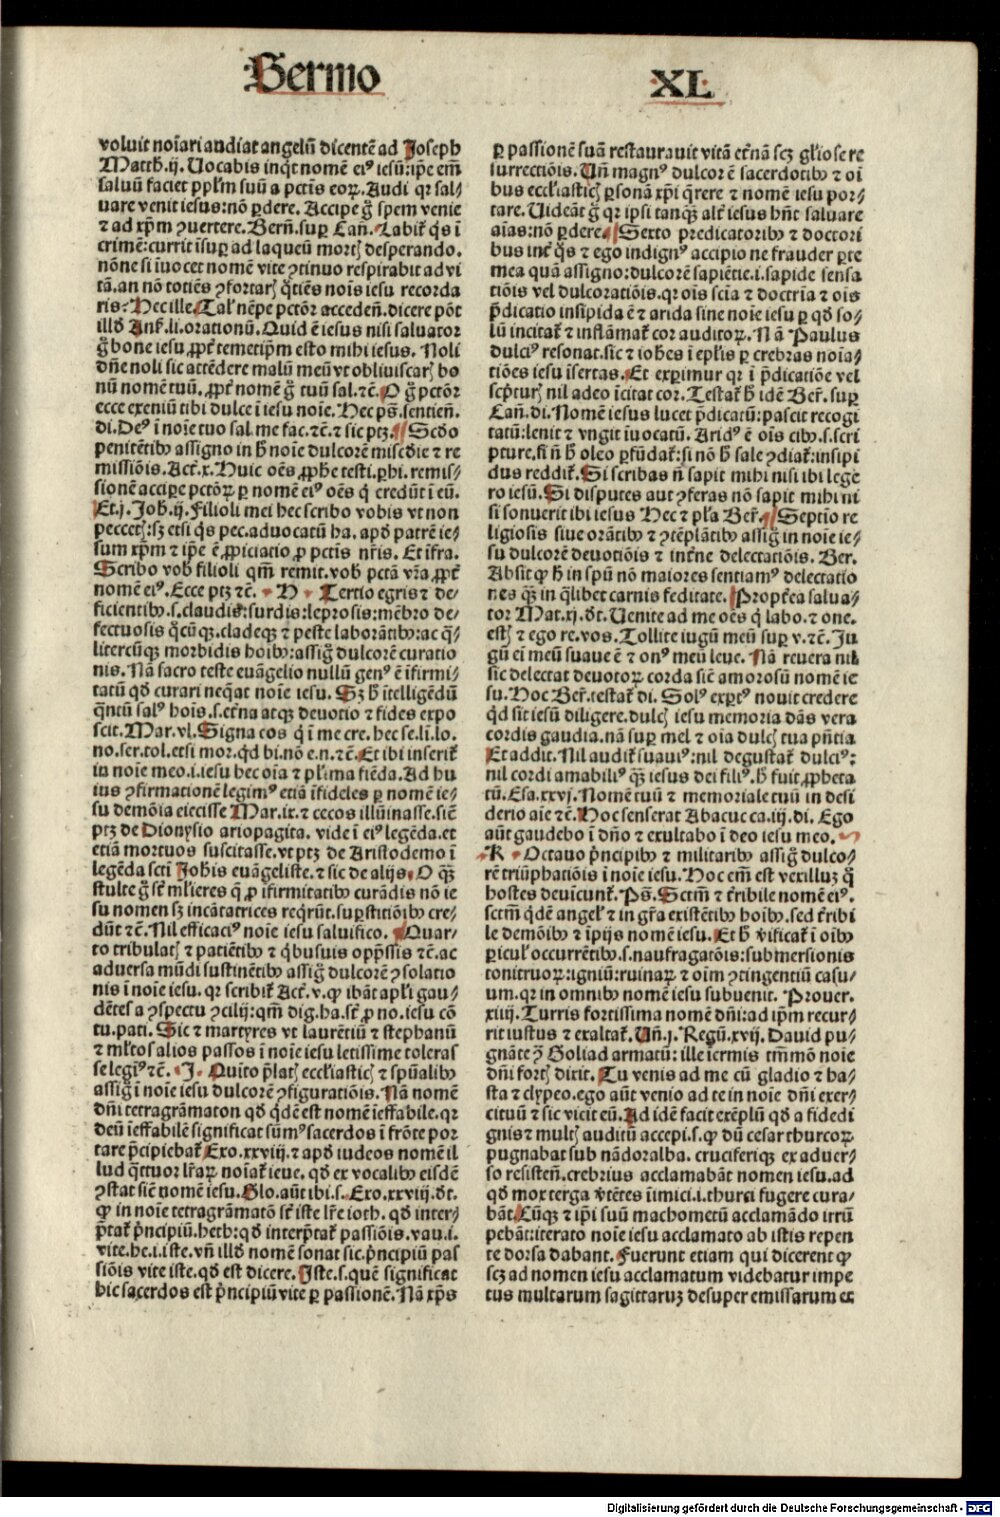 Sermo
XL
voluit noīari audiat angelū dicentē ad Joseph
Matth.ij. Uocabis inqͭ nomē eiꝰ iesū:ip̄e em̄
saluū faciet ppl̄m suū a pctīs eoꝝ. Audi qr sal⸗
uare venit iesus:nō ꝑdere. Accipe g̊ spem venie
⁊ ad xp̄m ꝯuertere. Bern̄.suꝑ Cañ. Labit͛ qͥs ī
crimē:currit īsuꝑ ad laqueū mortꝭ desperando.
nōne si īuocet nomē vite ꝯtinuo respirabit ad vi
tā.an nō totiēs ꝯfortarꝭ qͦtiēs noīs iesu recorda
ris:Hec ille. Tal̛ nēpe pctōr acceden̄.dicere pōt
illđ Ans̛.li.orationū. Quid ē iesus nisi saluator
g̊ bone iesu ꝓpt͛ temetip̄m esto mihi iesus. Noli
dn̄e noli sic attēdere malū meū vt obliuiscarꝭ bo
nū nomē tuū. ꝓpt͛ nomē g̊ tuū sal.⁊c̄. O g̊ pctōr
ecce exeniū tibi dulce ī iesu noīe. Hec ps̄.sentien̄.
di. Deꝰ ī noīe tuo sal me fac.⁊c̄. ⁊ sic ptꝫ. Scđo
penitētibꝰ assigno in h̄ noīe dulcorē misc̄die ⁊ re
missiōis. Act͛.x. Huic oēs ꝓphe testi.ꝑhi. remis⸗
sionē accipe pctōꝝ ꝑ nomē eiꝰ oēs q̇ credūt ī eū.
Et.j. Joh.ij. Filioli mei hec scribo vobis vt non
peccetꝭ:sꝫ etsi qͥs pec.aduocatū ha. apđ patrē ie⸗
sum xp̄m ⁊ ip̄e ē ꝓpiciatio ꝓ pctīs nr̄is. Et īfra.
Scribo vob̛ filioli qm̄ remit.vob̛ pctā vr̄a ꝓpt͛
nomē eiꝰ. Ecce ptꝫ ⁊c̄. H Tertio egris ⁊ de⸗
ficientibꝰ.s.claudis:surdis:leprosis:mēbro de⸗
fectuosis qͥcūqꝫ.cladeqꝫ ⁊ peste laborātibꝰ:ac q̄⸗
litercūqꝫ morbidis hoībꝰ:assig̊ dulcorē curatio
nis. Nā sacro teste euāgelio nullū genꝰ ē īfirmi⸗
tatū qđ curari neq̄at noīe iesu. Sꝫ h̄ ītelligēdū
q̄ntū salꝰ hoīs.s.et͛na atqꝫ deuotio ⁊ fides expo
scit. Mar.vl. Signa eos q̇ ī me cre. hec se.li.lo.
no.ser.tol.etsi mor.qͥd bi.nō e.n.⁊c̄. Et ibi inserit͛
in noīe meo.i.iesu hec oīa ⁊ pl̄ima fiēda. Ad hu
ius ꝯfirmationē legimꝰ etiā īfideles ꝑ nomē ie⸗
su demōia eiecisse Mar.ix.⁊ cecos illūinasse.siē
ptꝫ de Dionysio ariopagita. vide ī eiꝰ legēda.et
etiā mortuos suscitasse.vt ptꝫ de Aristodemo ī
legēda scti Joh̄is euāgeliste.⁊ sic de alijs. O qͣꝫ
stulte g̊ st̄ ml̄ieres q̄ ꝓ ifirmitatibꝰ curādis nō ie
su nomen sꝫ incātatrices reqͥrūt.suꝑstitiōibꝰ cre⸗
dūt ⁊c̄. Nil efficaciꝰ noīe iesu saluifico. Quar⸗
to tribulatꝭ ⁊ patiētibꝰ ⁊ qͥbusuis opp̄ssis ⁊c̄.ac
aduersa mūdi sustinētibꝰ assig̊ dulcorē ꝯsolatio
nis ī noīe iesu. qr scribit͛ Act͛.v.ꝙ ibāt apl̄i gau⸗
dētes a ꝯspectu ꝯcilij:qm̄ dig.ha.st̄ ꝓ no.iesu cō
tu.pati. Sic ⁊ martyres vt laurētiū ⁊ stephanū
⁊ ml̄tos alios passos ī noīe iesu letissime toleras
se legiꝰ ⁊c̄. J. Quīto p̄latꝭ eccl̄iasticꝭ ⁊ spūalibꝰ
assig̊ ī noīe iesu dulcorē ꝯfiguratiōis. Nā nomē
dn̄i tetragrāmaton qđ qͥdē est nomē īeffabile.qr
deū īeffabilē significat sūmꝰ sacerdos ī frōte por
tare p̄cipiebat͛ Exo.xxviij.⁊ apđ iudeos nomē il
lud q̄ttuor lr̄aꝝ noīat͛ ieue. qđ ex vocalibꝰ eisdē
ꝯstat siē nomē iesu. Glo.aūt ibi.s. Exo.xxviij.dt.
ꝙ in noīe tetragrāmatō st̄ iste lr̄e ioth. qđ inter⸗
p̄tat͛ pͥncipiū.heth:qđ interp̄tat͛ passiōis.vau.i.
vite.he.i.iste.vn̄ illđ nomē sonat sic.pͥncipiū pas
siōis vite iste.qđ est dicere. Iste.s.quē significat
hic sacerdos est pͥncipiū vite ꝑ passionē. Nā xp̄s
ꝑ passionē suā restaurauit vitā et͛nā scꝫ gl̄iose re
surrectiōis. Un̄ magnꝰ dulcor ē sacerdotibꝰ ⁊ oī
bus eccl̄iasticꝭ ꝑsonā xp̄i q̄rere ⁊ nomē iesu por⸗
tare. Uideāt g̊ qr ipsi tanqͣꝫ alt͛ iesus hn̄t saluare
aīas:nō ꝑdere. Sexto predicatoribꝰ ⁊ doctori
bus int͛ qͥs ⁊ ego indignꝰ accipio ne frauder ꝑte
mea quā assigno:dulcorē sapiētie.i.sapide sensa
tiōis vel dulcoratiōis.qr oīs sciā ⁊ doctrīa ⁊ oīs
p̄dicatio insipida ē ⁊ arida sine noīe iesu ꝑ qđ so⸗
lū incitat͛ ⁊ inflāmat͛ cor auditoꝝ. Nā Paulus
dulciꝰ resonat.sic ⁊ ioh̄es ī epl̄is ꝑ crebras noīa⸗
tiōes iesu īsertas. Et exꝑimur qr ī p̄dicatiōe vel
scpͥturꝭ nil adeo īcitat cor. Testat͛ h̄ idē Ber̄.suꝑ
Cañ.di. Nomē iesus lucet p̄dicatū:pascit recogi
tatū:lenit ⁊ vngit īuocatū. Aridꝰ ē oīs cibꝰ.s.scri
pture.si n̄ h̄ oleo ꝑfūdat͛:si nō h̄ sale ꝯdiat͛:insipi
dus reddit͛. Si scribas n̄ sapit mihi nisi ibi lege
ro iesū. Si disputes aut ꝯferas nō sapit mihi ni
si sonuerit ibi iesus Hec ⁊ pl̄a Ber̄. Septīo re
ligiosis siue orātibꝰ ⁊ ꝯtēplātibꝰ assig̊ in noīe ie⸗
su dulcorē deuotiōis ⁊ int͛ne delectatiōis. Ber.
Absit ꝙ h̄ in spū nō maiores sentiamꝰ delectatio
nes qͣꝫ in qͣlibet carnis feditate. Propt͛ea salua⸗
tor Mat.xj.dt. Uenite ad me oēs q̇ labo.⁊ one.
estꝭ ⁊ ego re.vos. Tollite iugū meū suꝑ v.⁊c̄. Ju
gū eī meū suaue ē ⁊ onꝰ meū leue. Nā reuera nil
sic delectat deuotoꝝ corda siē amorosū nomē ie
su. Hoc Ber̄.testat͛ di. Solꝰ expt̄ꝰ nouit credere
qͥd sit iesū diligere.dulcꝭ iesu memoria dās vera
cordis gaudia.nā suꝑ mel ⁊ oīa dulcꝭ tua pn̄tia
Et addit. Nil audit͛ suauiꝰ:nil degustat͛ dulciꝰ:
nil cordi amabiliꝰ qͣꝫ iesus dei filiꝰ.h̄ fuit ꝓpheta
tū. Esa.xxvj. Nomē tuū ⁊ memoriale tuū in desi
derio aīe ⁊c̄. Hoc senserat Abacuc ca.iij.di. Ego
aūt gaudebo ī dn̄o ⁊ exultabo ī deo iesu meo.
K Octauo pͥncipibꝰ ⁊ militaribꝰ assig̊ dulco⸗
rē triūphatiōis ī noīe iesu. Hoc em̄ est vexilluꝫ q̊
hostes deuicunt͛. Ps̄. Sctm̄ ⁊ t͛ribile nomē eiꝰ.
sctm̄ qͥdē angel̛ ⁊ in gr̄a existētibꝰ hoībꝰ.sed t͛ribi
le demōibꝰ ⁊ īpijs nomē iesu. Et h̄ v̓ificat͛ ī oībꝰ
ꝑiculꝭ occurrētibꝰ.s.naufragatōis:submersionis
tonitruoꝝ:igniū:ruinaꝝ ⁊ oīm ꝯtingentiū casu⸗
um.qr in omnibꝰ nomē iesu subuenit. Prouer.
xiiij. Turris fortissima nomē dn̄i:ad ip̄m recur⸗
rit iustus ⁊ exaltat͛. Un̄.j. Regū.xvij. Dauid pu⸗
gnāte ꝯ̄ Goliad armatū:ille iermis tm̄mō noīe
dn̄i fortꝭ dixit. Tu venis ad me cū gladio ⁊ ha⸗
sta ⁊ clypeo.ego aūt venio ad te in noīe dn̄i exer⸗
cituū ⁊ sic vicit eū. Ad idē facit exēplū qđ a fidedi
gnis ⁊ multꝭ auditū accepi.s.ꝙ dū cesar thurcoꝝ
pugnabat sub nādoralba. cruciferiqꝫ ex aduer⸗
so resisten̄.crebrius acclamabāt nomen iesu.ad
qđ mox terga v̓tētes īimici.i.thurci fugere cura⸗
bāt. Cūqꝫ ⁊ ip̄i suū machometū acclamādo irrū
pebāt:iterato noīe iesu acclamato ab istis repen
te dorsa dabant. Fuerunt etiam qui dicerent ꝙ
scꝫ ad nomen iesu acclamatum videbatur impe
tus multarum sagittaruꝫ desuper emissarum ex
Digitalisierung gefördert durch die Deutsche Forschungsgemeinschaft - DFG